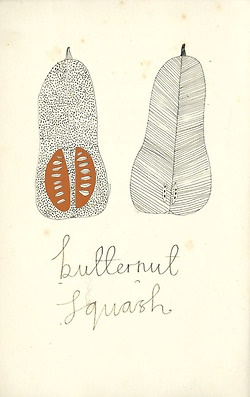 butternut
squash